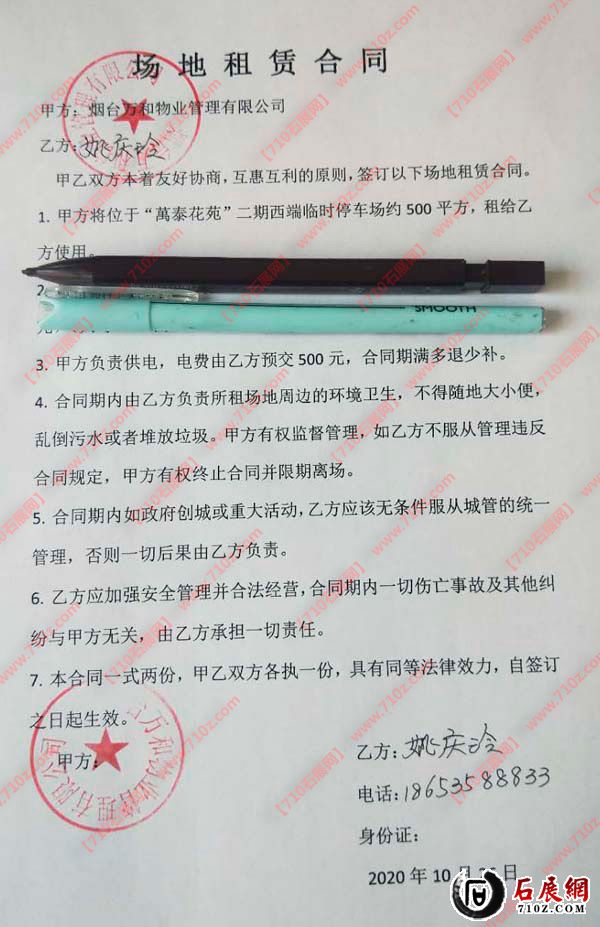 场地租赁合同
甲方：烟台万和物业管理有限公司
乙方：姚庆玲
甲乙双方本着友好协商，互惠互利的原则，签订以下场地租赁合同。
1. 甲方将位于“萬泰花苑”二期西端临时停车场约500平方，租给乙
方使用。
2.
SMOOTH
3. 甲方负责供电，电费由乙方预交500元，合同期满多退少补。
4. 合同期内由乙方负责所租场地周边的环境卫生，不得随地大小便，
乱倒污水或者堆放垃圾。甲方有权监督管理，如乙方不服从管理违反
合同规定，甲方有权终止合同并限期离场。
5. 合同期内如政府创城或重大活动，乙方应该无条件服从城管的统一
管理，否则一切后果由乙方负责。
6. 乙方应加强安全管理并合法经营，合同期内一切伤亡事故及其他纠
纷与甲方无关，由乙方承担一切责任。
7. 本合同一式两份，甲乙双方各执一份，具有同等法律效力，自签订
之日起生效。
甲方：
万和物业管理有限公司
乙方：姚庆玲
电话：18653588833
身份证：
2020年10月 日
【710石展网】www.710z.com
石展網
710Z.COM